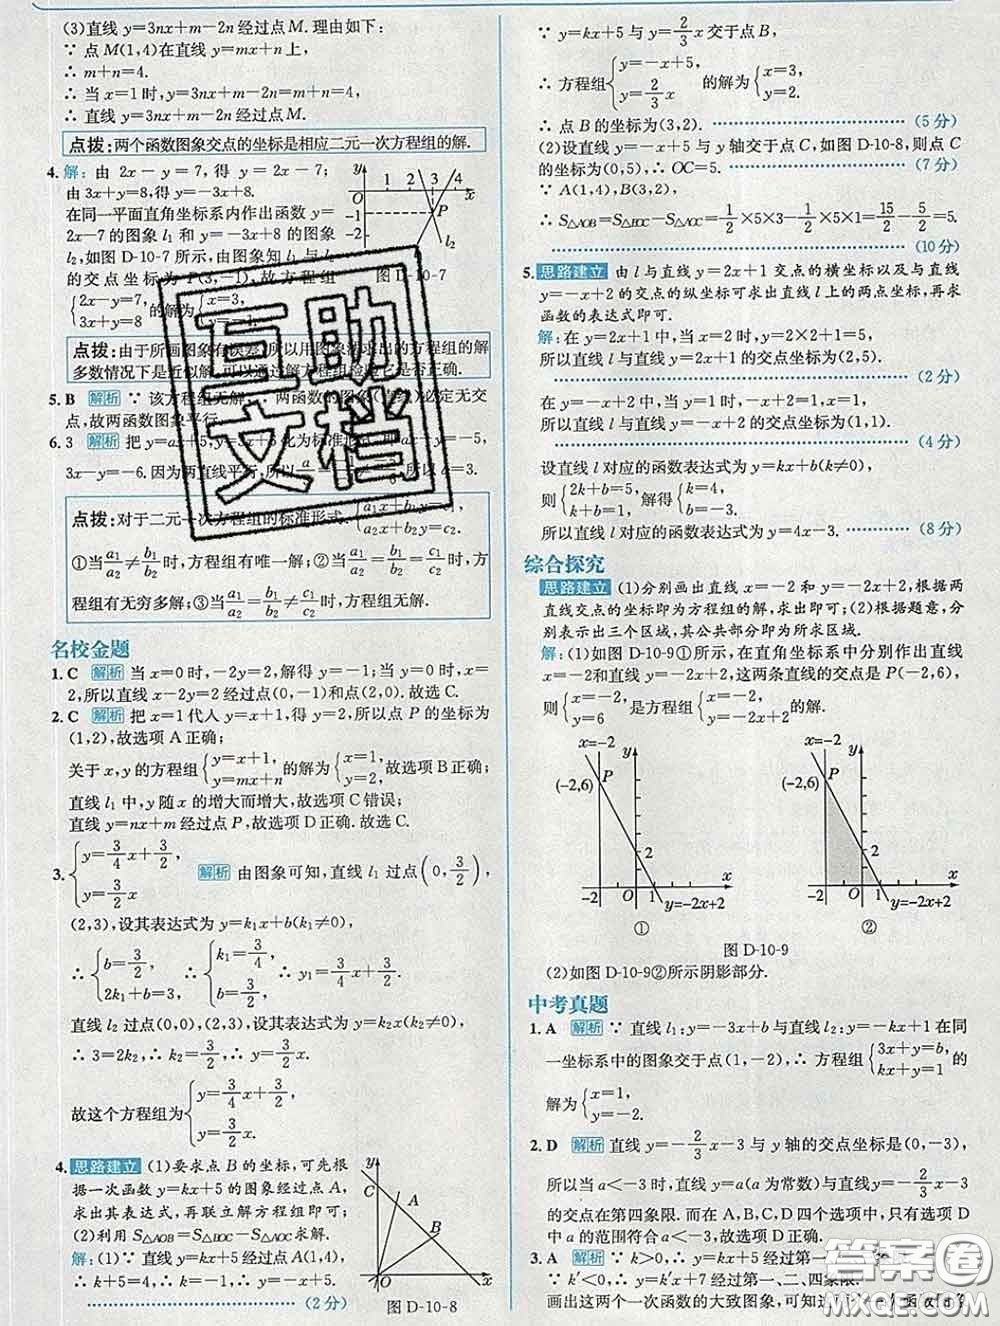 (3)直线 y=3nx+m-2n 经过点 M. 理由如下:
∵ 点 M(1,4)在直线 y=mx+n 上,
∴ m+n=4.
∴ 当 x=1 时, y=3nx+m-2n=m+n=4,
∴ 直线 y=3nx+m-2n 经过点 M.
点拨:两个函数图象交点的坐标是相应二元一次方程组的解.
4. 解: 由 2x-y=7, 得 y=2x-7;
由 3x+y=8,得 y=-3x+8.
在同一平面直角坐标系内作出函数 y=
2x-7 的图象 l₁ 和 y=-3x+8 的图象
l₂,如图 D-10-7 所示,由图象知 l₁ 与 l₂
的交点坐标为 P(3,-1),故方程组
{2x-y=7, 3x+y=8 的解为{x=3,
y 1 2 3 4 x O -1 -2 P l₂
图 D-10-7
点拨:由于所画图象有误差,所以用图象法求出的方程组的解
多数情况下是近似解,可以通过解方程组检验它是否正确.
5. B 解析 ∵ 该方程组无解,∴ 两函数的图象(直线)必定无交
点,故两函数图象平行.
6. 3 解析 把 y=ax+5,y=3x+6 化为标准形式,即 ax-y=-5,
3x-y=-6. 因为两直线平行,所以 a=3.
点拨:对于二元一次方程组的标准形式{a₁x+b₁y=c₁, a₂x+b₂y=c₂.
①当a₁/a₂≠b₁/b₂时,方程组有唯一解;②当a₁/a₂=b₁/b₂=c₁/c₂时,方
程组有无穷多解;③当a₁/a₂=b₁/b₂≠c₁/c₂时,方程组无解.
名校金题
1. C 解析 当 x=0 时,-2y=2,解得 y=-1;当 y=0 时,x=
2,所以直线 x-2y=2 经过点(0,-1)和点(2,0). 故选 C.
2. C 解析 把 x=1 代入 y=x+1,得 y=2,所以点 P 的坐标为
(1,2),故选项 A 正确;
关于 x,y 的方程组{y=x+1, y=mx+n 的解为{x=1, y=2, 故选项 B 正确;
直线 l₁ 中,y 随 x 的增大而增大,故选项 C 错误;
直线 y=nx+m 经过点 P,故选项 D 正确. 故选 C.
3. {y=3/4x+3/2, y=3/2x 解析 由图象可知,直线 l₁ 过点(0,3/2),
(2,3),设其表达式为 y=k₁x+b(k₁≠0),
∴ {b=3/2, 2k₁+b=3, ∴ {k₁=3/4, b=3/2, ∴ y=3/4x+3/2.
直线 l₂ 过点(0,0),(2,3),设其表达式为 y=k₂x(k₂≠0),
∴ 3=2k₂,∴ k₂=3/2,∴ y=3/2x.
故这个方程组为{y=3/4x+3/2, y=3/2x.
4. 思路建立 (1)要求点 B 的坐标,可先根
据一次函数 y=kx+5 的图象经过点 A,
求出其表达式,再联立解方程组即可;
(2)利用 S△AOB=S△BOC-S△AOC求解.
解:(1)∵ 直线 y=kx+5 经过点 A(1,4),
∴ k+5=4,∴ k=-1,∴ y=-x+5.
(2 分)
y C A B O x
图 D-10-8
∵ y=kx+5 与 y=2/3x 交于点 B,
∴ 方程组{y=-x+5, y=2/3x 的解为{x=3, y=2.
∴ 点 B 的坐标为(3,2). (5 分)
(2)设直线 y=-x+5 与 y 轴交于点 C,如图 D-10-8,则点 C
的坐标为(0,5),∴ OC=5. (7 分)
∵ A(1,4),B(3,2),
∴ S△AOB=S△BOC-S△AOC=1/2×5×3-1/2×5×1=15/2-5/2=5.
(10 分)
5. 思路建立 由 l 与直线 y=2x+1 交点的横坐标以及与直线
y=-x+2 的交点的纵坐标可求出直线 l 上的两点坐标,再求
函数的表达式即可.
解:在 y=2x+1 中,当 x=2 时,y=2×2+1=5,
所以直线 l 与直线 y=2x+1 的交点坐标为(2,5).
(2 分)
在 y=-x+2 中,当 y=1 时,-x+2=1,x=1,
所以直线 l 与直线 y=-x+2 的交点坐标为(1,1).
(4 分)
设直线 l 对应的函数表达式为 y=kx+b(k≠0),
则{2k+b=5, k+b=1, 解得{k=4, b=-3.
所以直线 l 对应的函数表达式为 y=4x-3. (8 分)
综合探究
思路建立 (1)分别画出直线 x=-2 和 y=-2x+2,根据两
直线交点的坐标即为方程组的解,求出即可;(2)根据题意,分
别表示出三个区域,其公共部分即为所求区域.
解:(1)如图 D-10-9①所示,在直角坐标系中分别作出直线
x=-2 和直线 y=-2x+2,这两条直线的交点是 P(-2,6),
则{x=-2, y=6 是方程组{x=-2, y=-2x+2 的解.
x=-2 y (-2,6) P 2 -2 O 1 x y=-2x+2 ①
x=-2 y (-2,6) P 2 -2 O 1 x y=-2x+2 ②
图 D-10-9
(2)如图 D-10-9②所示阴影部分.
中考真题
1. A 解析 ∵ 直线 l₁:y=-3x+b 与直线 l₂:y=-kx+1 在同
一坐标系中的图象交于点(1,-2),∴ 方程组{3x+y=b, kx+y=1 的
解为{x=1, y=-2.
2. D 解析 直线 y=-2/3x-3 与 y 轴的交点坐标是(0,-3),
所以当 a<-3 时,直线 y=a(a 为常数)与直线 y=-2/3x-3
的交点在第四象限. 而在 A、B、C、D 四个选项中,只有选项 D
中 a 的范围符合 a<-3,故选 D.
3. A 解析 ∵ k>0,∴ y=kx+ 经过第一、
∵ k′<0,∴ y=k′x+7 经过第一、二、四象限.
画出这两个一次函数的大致图象,可知这两个一次函数的
互助文档
答案圈
MXQE.COM